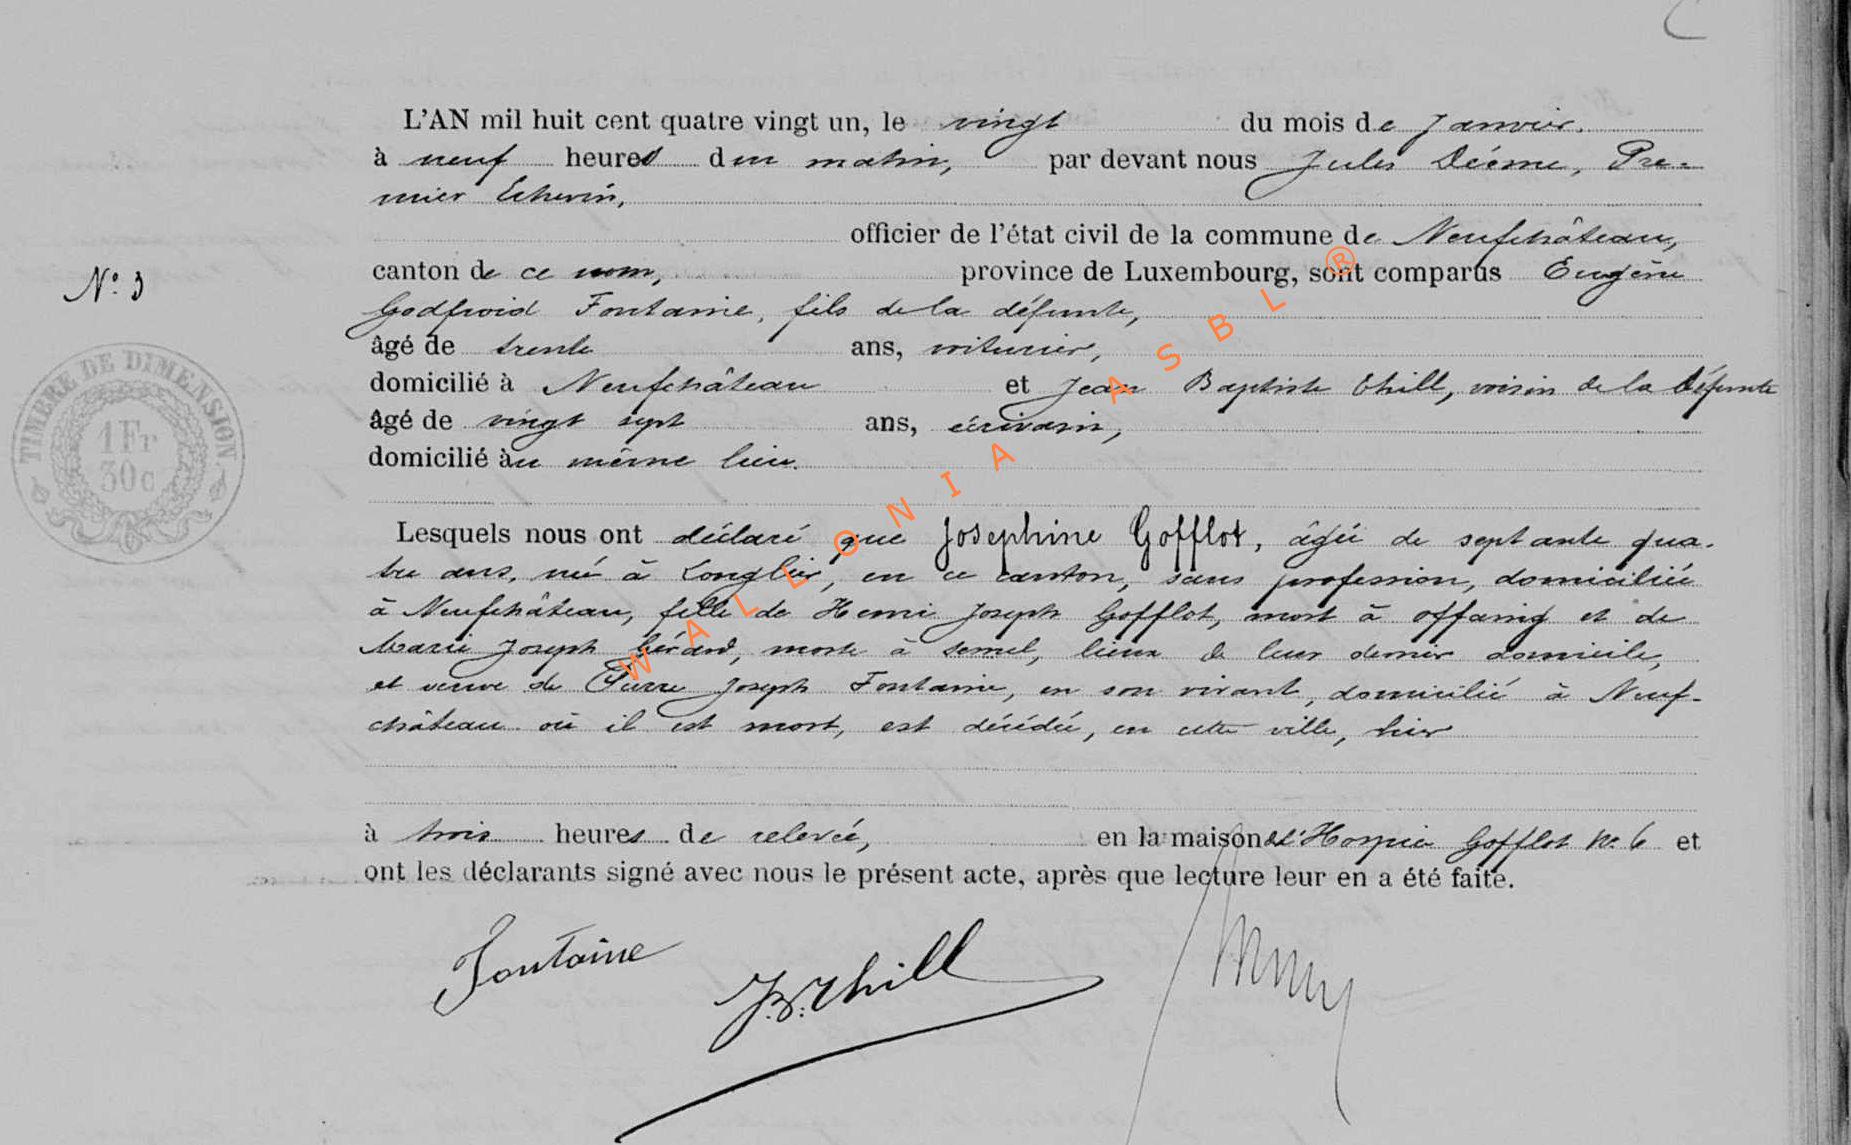 L'AN mil huit cent quatre vingt un, le vingt du mois de Janvier.
à neuf heures du matin, par devant nous Jules Pre-
mier Echevin,
officier de l'état civil de la commune de Neufchâteau,
N° 3
canton de ce nom, province de Luxembourg, sont comparus Eugène
Godfroid Fontaine, fils de la défunte,
âgé de trente ans, voiturier,
TIMBRE DE DIMENSION
1Fr
30c
domicilié à Neufchâteau et Jean Baptiste Thill, voisin de la défunte
âgé de vingt sept ans, écrivain,
domicilié au même lieu.
Lesquels nous ont déclaré que Josephine Gofflot, âgée de septante qua-
tre ans, née à Longlier, en ce canton, sans profession, domiciliée
à Neufchâteau, fille de Henri Joseph Gofflot, mort à Offaing et de
Marie Joseph Gérard, morte à Semel, lieux de leur dernier domicile,
et veuve de Pierre Joseph Fontaine, en son vivant, domicilié à Neuf-
château où il est mort, est décédée, en cette ville, hier
à trois heures de relevée, en la maison de l'Hospice Gofflot N° 6 et
ont les déclarants signé avec nous le présent acte, après que lecture leur en a été faite.
Fontaine
J.B. Thill
WALLONIA ASBL ®